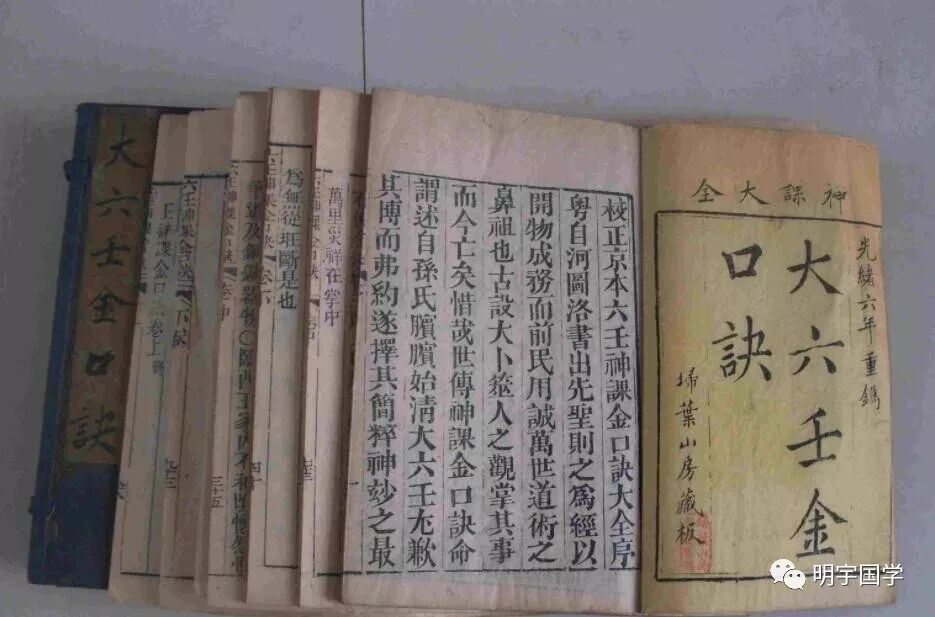 神課大全
光緒六年重鐫
大六壬金
口訣
埽葉山房藏板
校正京本六壬神課金口訣大全序
粵自河圖洛書出先聖則之為經以
開物成務而前民用誠萬世道術之
鼻祖也古設大卜筮人之觀掌其事
而今亡矣惜哉世傳神課金口訣命
謂述自孫氏臏臏始清大六壬尢歉
其博而弗約遂擇其簡粹神玅之最
萬里災祥在掌中
為無從班斷是也
大六壬金口訣
明宇国学